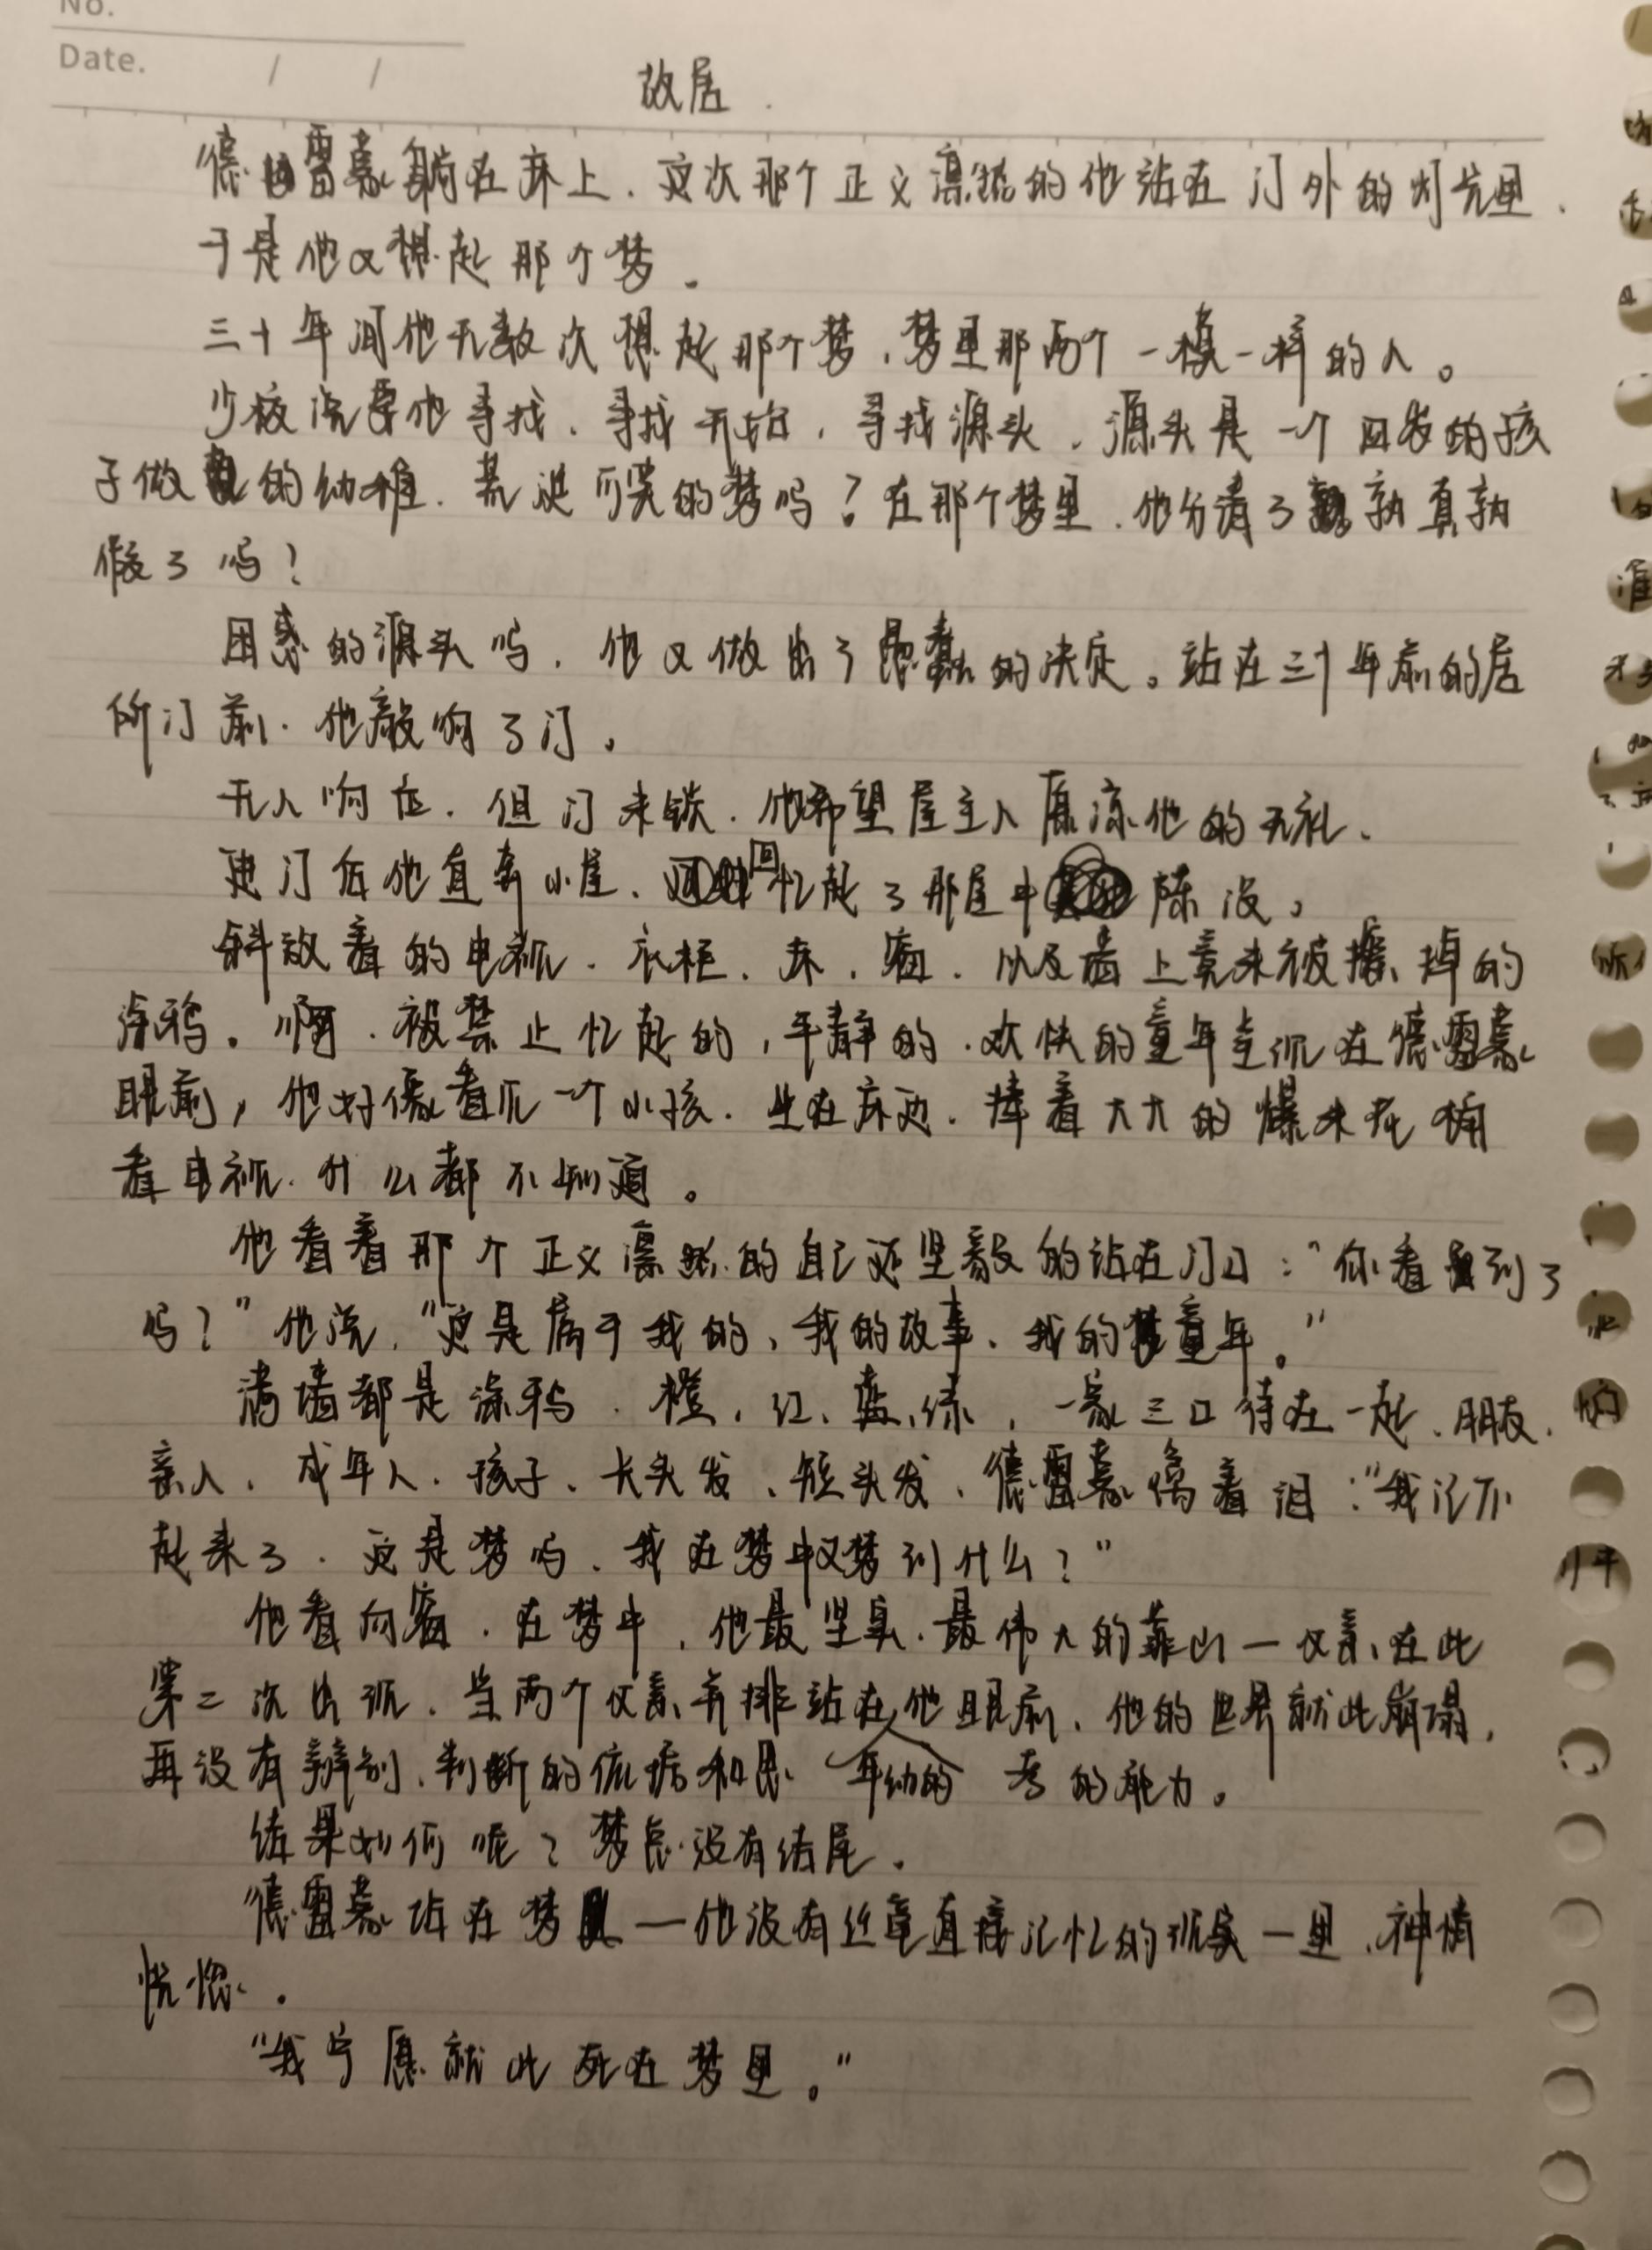 No.
Date. / /
故居
德雷蒙躺在床上，这次那个正义凛然的他站在门外的灯光里，
于是他又想起那个梦。
三十年间他无数次想起那个梦，梦里那两个一模一样的人。
少校说要他寻找，寻找开始，寻找源头，源头是一个四岁的孩
子做的幼稚、荒诞可笑的梦吗？在那个梦里，他分清了孰真孰
假了吗？
困惑的源头吗，他又做出了愚蠢的决定。站在三十年前的居
所门前，他敲响了门。
无人响应，但门未锁，他希望屋主人原谅他的无礼。
进门后他直奔小屋，回忆起了那屋中陈设。
斜放着的电视、衣柜、床、窗，以及墙上竟未被擦掉的
涂鸦。啊，被禁止忆起的，平静的、欢快的童年呈现在德雷蒙
眼前，他好像看见一个小孩，坐在床边，捧着大大的爆米花桶
看电视，什么都不知道。
他看着那个正义凛然的自己还坚毅的站在门口：“你看到了
吗？”他说，“这是属于我的，我的故事、我的童年。”
满墙都是涂鸦，橙、红、蓝、绿，一家三口待在一起、朋友、
亲人、成年人、孩子、长头发、短头发，德雷蒙噙着泪：“我记不
起来了，这是梦吗，我在梦中又梦到什么？”
他看向窗，在梦中，他最坚实、最伟大的靠山—父亲，在此
第二次出现，当两个父亲并排站在年幼的他眼前，他的世界就此崩塌，
再没有辨别、判断的依据和思考的能力。
结果如何呢？梦总没有结尾。
德雷蒙站在梦—他没有丝毫直接记忆的现实—里，神情
恍惚。
“我宁愿就此死在梦里。”